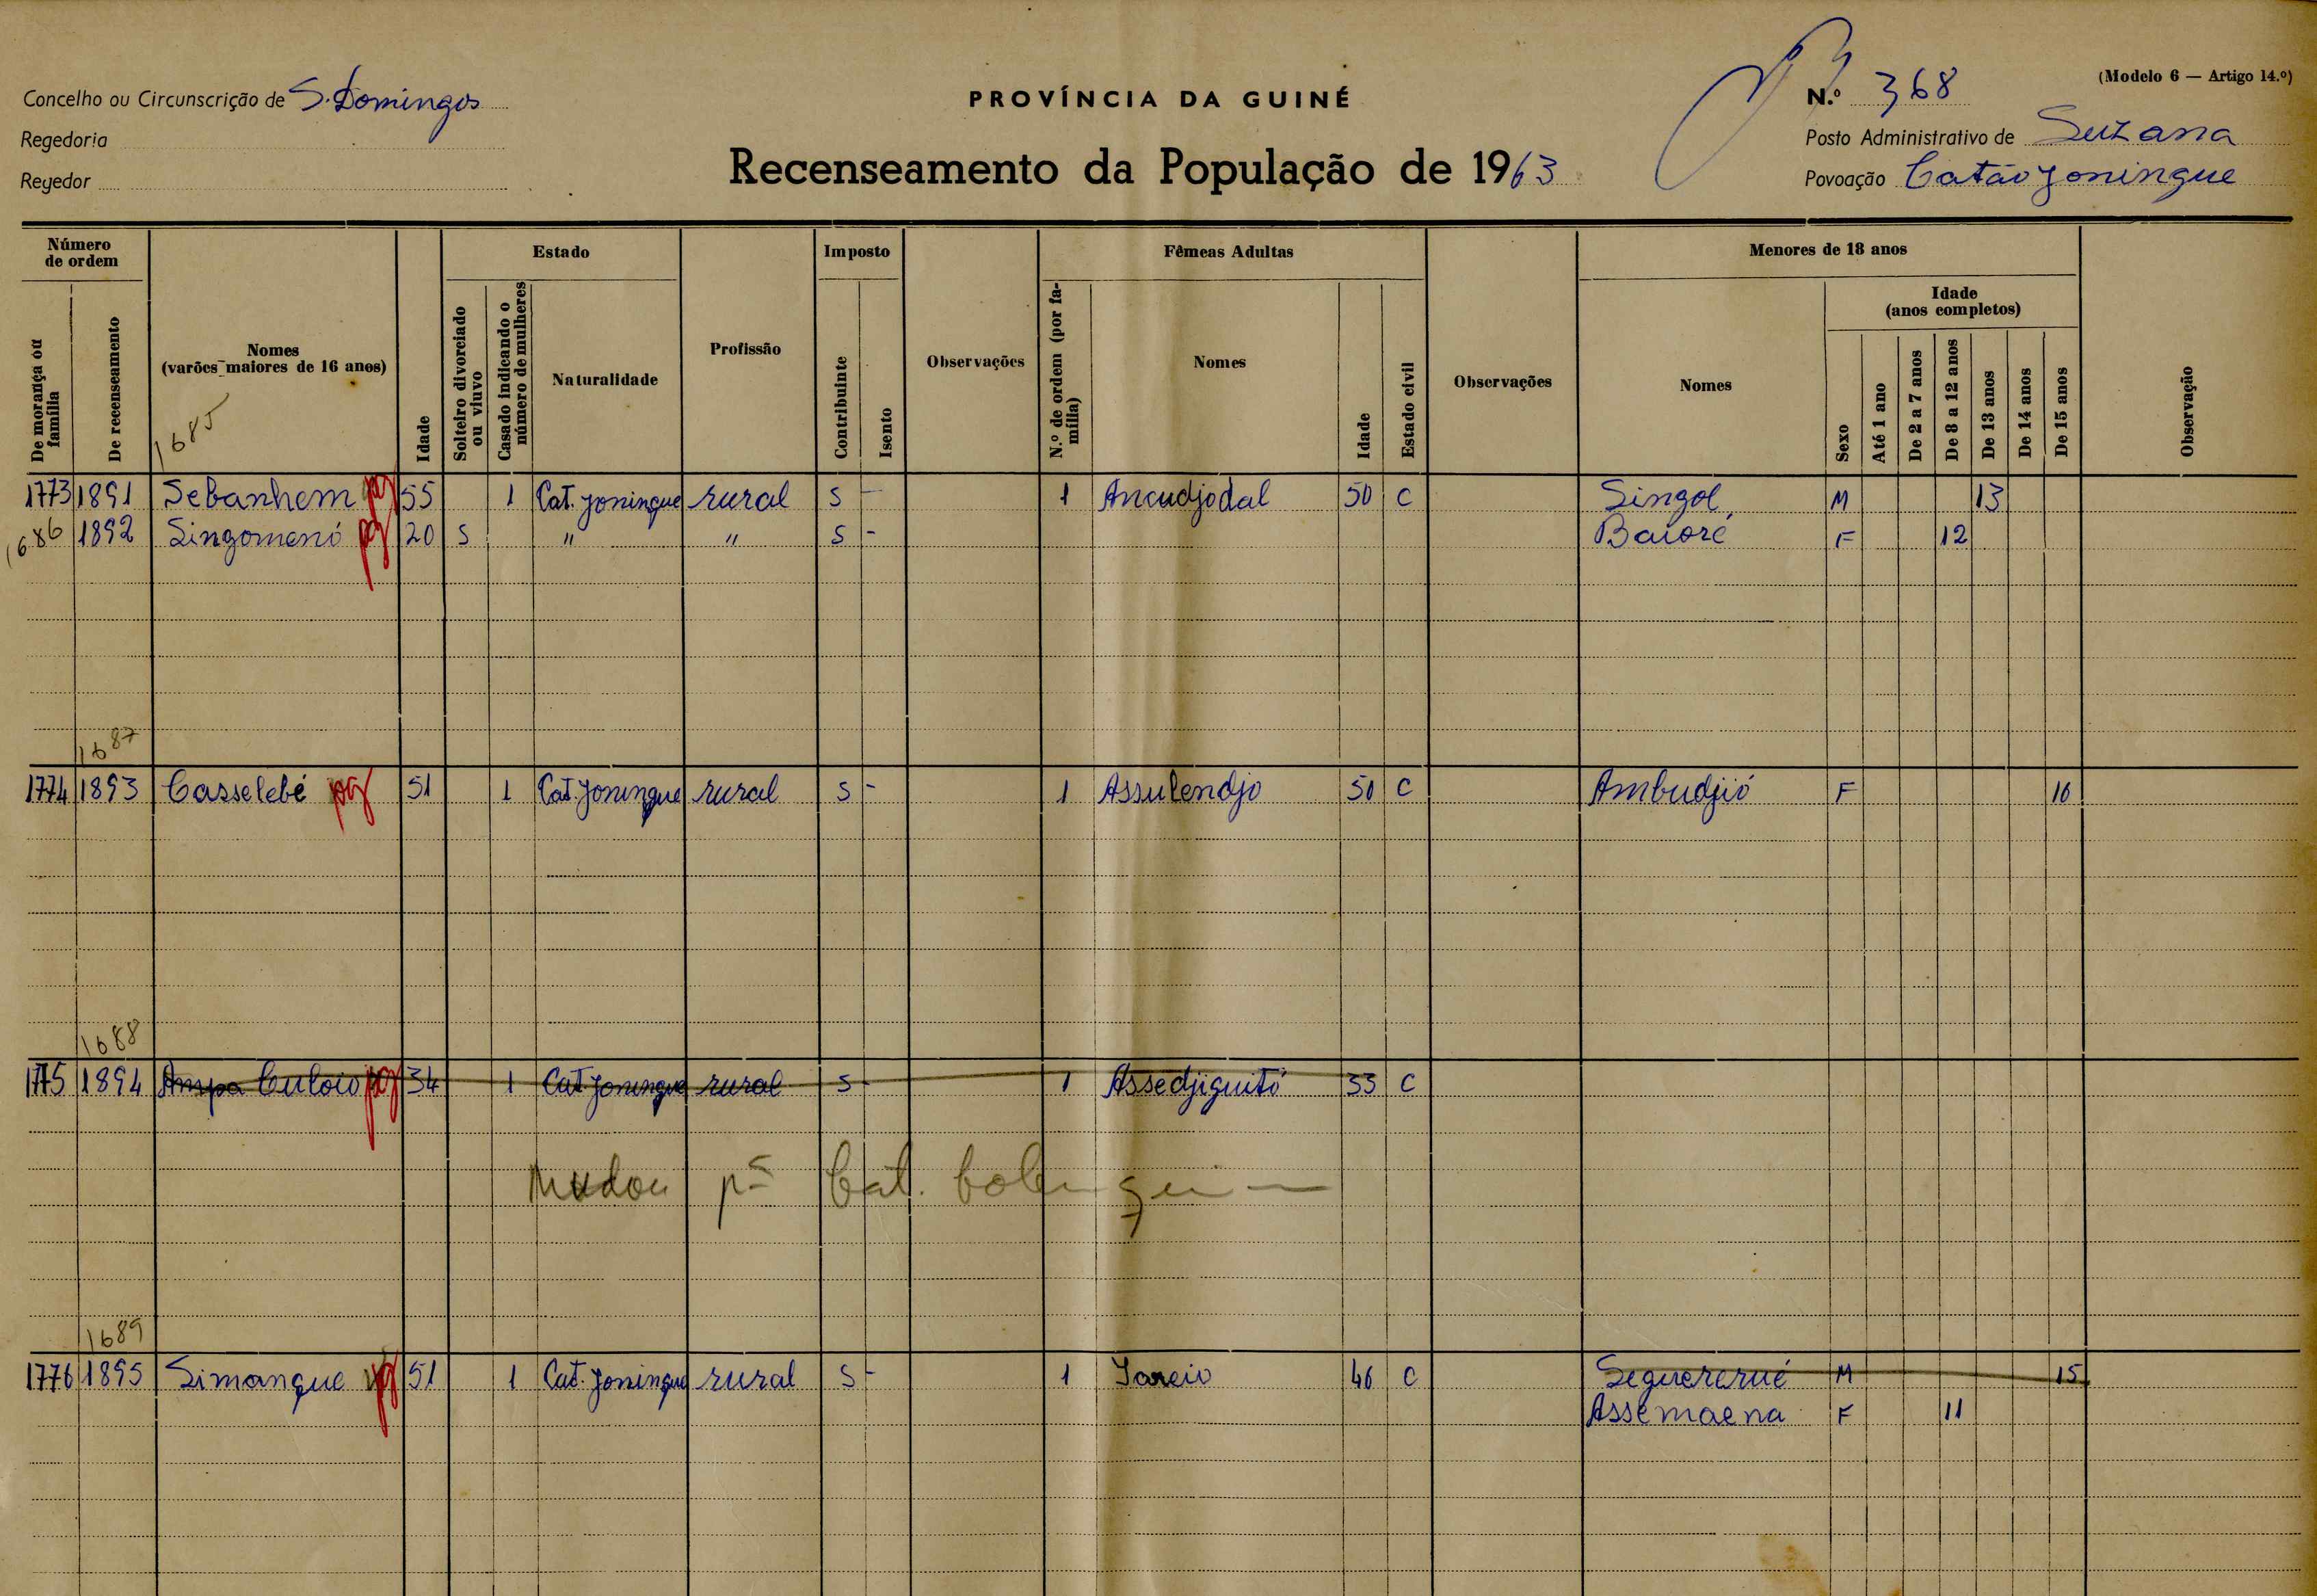 (Modelo 6 — Artigo 14.º)
Concelho ou Circunscrição de S. Domingos
PROVÍNCIA DA GUINÉ
N.º 368
Regedoria
Posto Administrativo de Suzana
Regedor
Recenseamento da População de 1963
Povoação Catão Joningue
Número de ordem
Estado
Imposto
Fêmeas Adultas
Menores de 18 anos
De morança ou família
De recenseamento
Nomes
(varões maiores de 16 anos)
Idade
Solteiro divorciado ou viuvo
Casado indicando o número de mulheres
Naturalidade
Profissão
Contribuinte
Isento
Observações
N.º de ordem (por família)
Nomes
Idade
Estado civil
Observações
Nomes
Sexo
Idade
(anos completos)
Até 1 ano
De 2 a 7 anos
De 8 a 12 anos
De 13 anos
De 14 anos
De 15 anos
Observação
1685
1773 1891 Sebanhem pg 55 1 Cat. Joningue rural S - 1 Ancudjodal 50 C Singol M 13
1686 1892 Singomenó pg 20 S " " S - Baioré F 12
1687
1774 1893 Casselebé pg 51 1 Cat. Joningue rural S - 1 Assulendjo 50 C Ambudjió F 16
1688
1775 1894 Ampa Culoio pg 34 1 Cat Joningue rural S - 1 Assedjiguitó 33 C
Mudou pª Cat.
1689
1776 1895 Simangue pg 51 1 Cat. Joningue rural S - 1 Sareio 46 C Seguererué M 15
Assemaena F 11